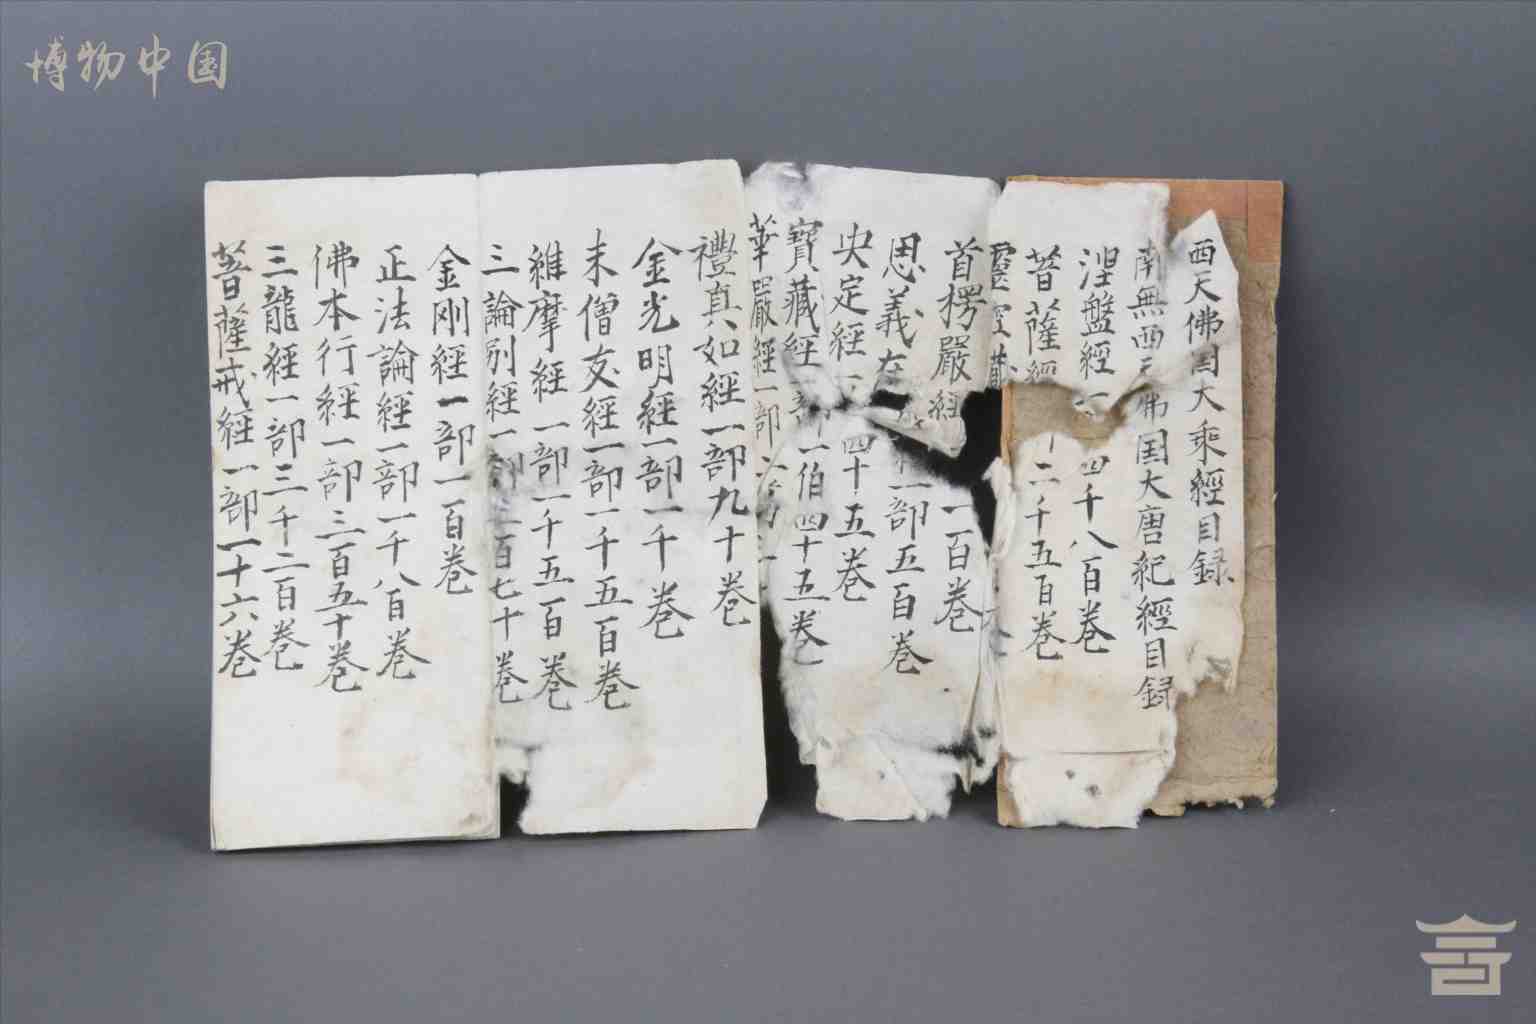 博物中国
西天佛国大乘經目録
南無西天佛国大唐紀經目録
涅盤經一 四千八百巻
菩薩經 二千五百巻
靈空藏
首楞嚴經 一百巻
思義在 一部五百巻
央定經一 四十五巻
寶藏經一部一伯四十五巻
華嚴經一部
禮真如經一部九十巻
金光明經一部一千巻
未僧友經一部一千五百巻
維摩經一部一千五百巻
三論別經一部二百七十巻
金剛經一部一百巻
正法論經一部一千八百巻
佛本行經一部三百五十巻
三龍經一部三千二百巻
菩薩戒經一部一十六巻